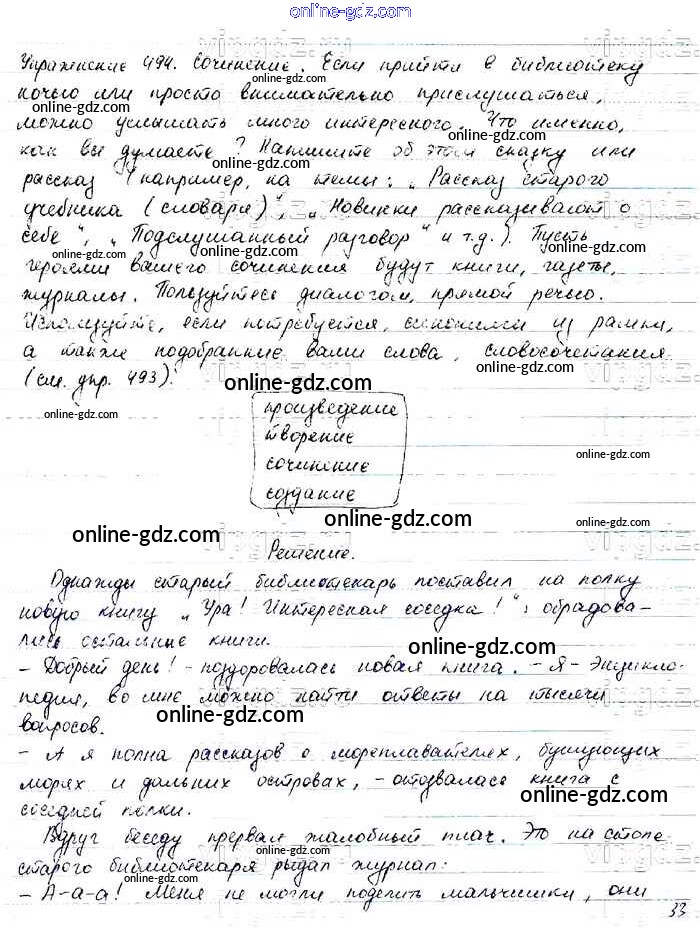 online-gdz.com
Упражнение 494. Сочинение. Если прийти в библиотеку
online-gdz.com
ночью или просто внимательно прислушаться,
можно услышать много интересного. Что именно,
online-gdz.com
как вы думаете? Напишите об этом сказку или
online-gdz.com
рассказ (например, на темы: „Рассказ старого
учебника (словаря)", „Новинки рассказывают о
online-gdz.com
себе", „Подслушанный разговор" и т.д.). Пусть
героями вашего сочинения будут книги, газеты,
online-gdz.com
журналы. Пользуйтесь диалогом, прямой речью.
Используйте, если потребуется, синонимы из рамки,
а также подобранные вами слова, словосочетания
(см. упр. 493).
online-gdz.com
online-gdz.com
произведение
творение
сочинение
online-gdz.com
создание
online-gdz.com
online-gdz.com
Решение.
Однажды старый библиотекарь поставил на полку
новую книгу „Ура! Интересная соседка!": обрадова-
лись остальные книги.
online-gdz.com
- Добрый день! - поздоровалась новая книга. - Я - Энцикло-
педия, во мне можно найти ответы на тысячи
online-gdz.com
вопросов.
- А я полна рассказов о мореплавателях, бушующих
морях и дальних островах, - отозвалась книга с
online-gdz.com
соседней полки.
online-gdz.com
Вдруг беседу прервал жалобный плач. Это на столе
старого библиотекаря рыдал журнал:
online-gdz.com
- А-а-а! Меня не могли поделить мальчишки, они
33